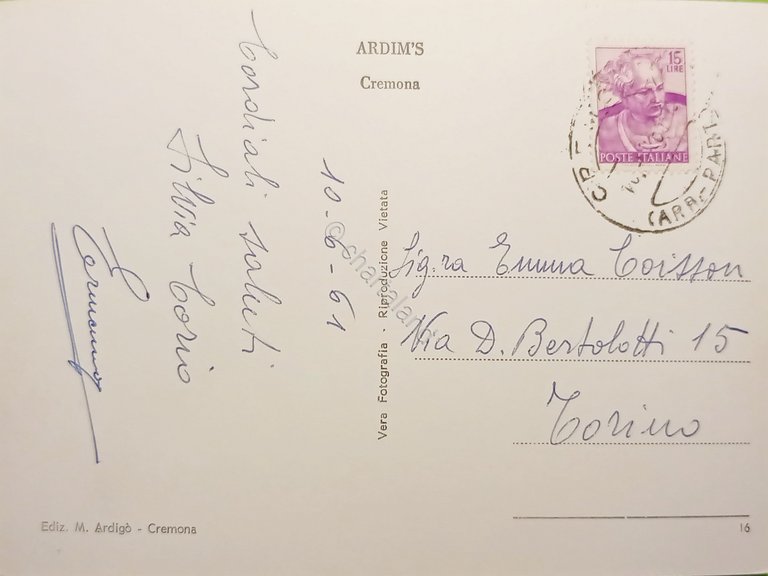 ARDIM'S
Cremona
15
LIRE
POSTE ITALIANE
(ARR.-PART
Cordiali saluti
Silvia Corio
10-6-61
Vera Fotografia - Riproduzione Vietata
© chartaland
Sig.ra Emma Coisson
Via D. Bertolotti 15
Torino
Ediz. M. Ardigò - Cremona
16